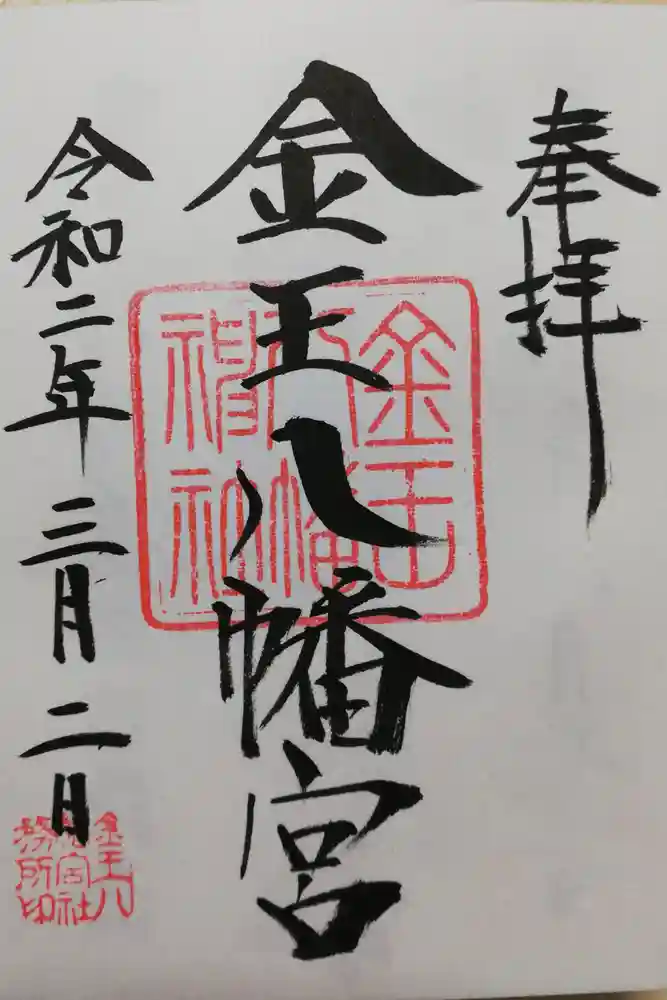 奉拝
金王八幡宮
金王八幡神社
令和二年三月二日
金王八幡宮社務所印